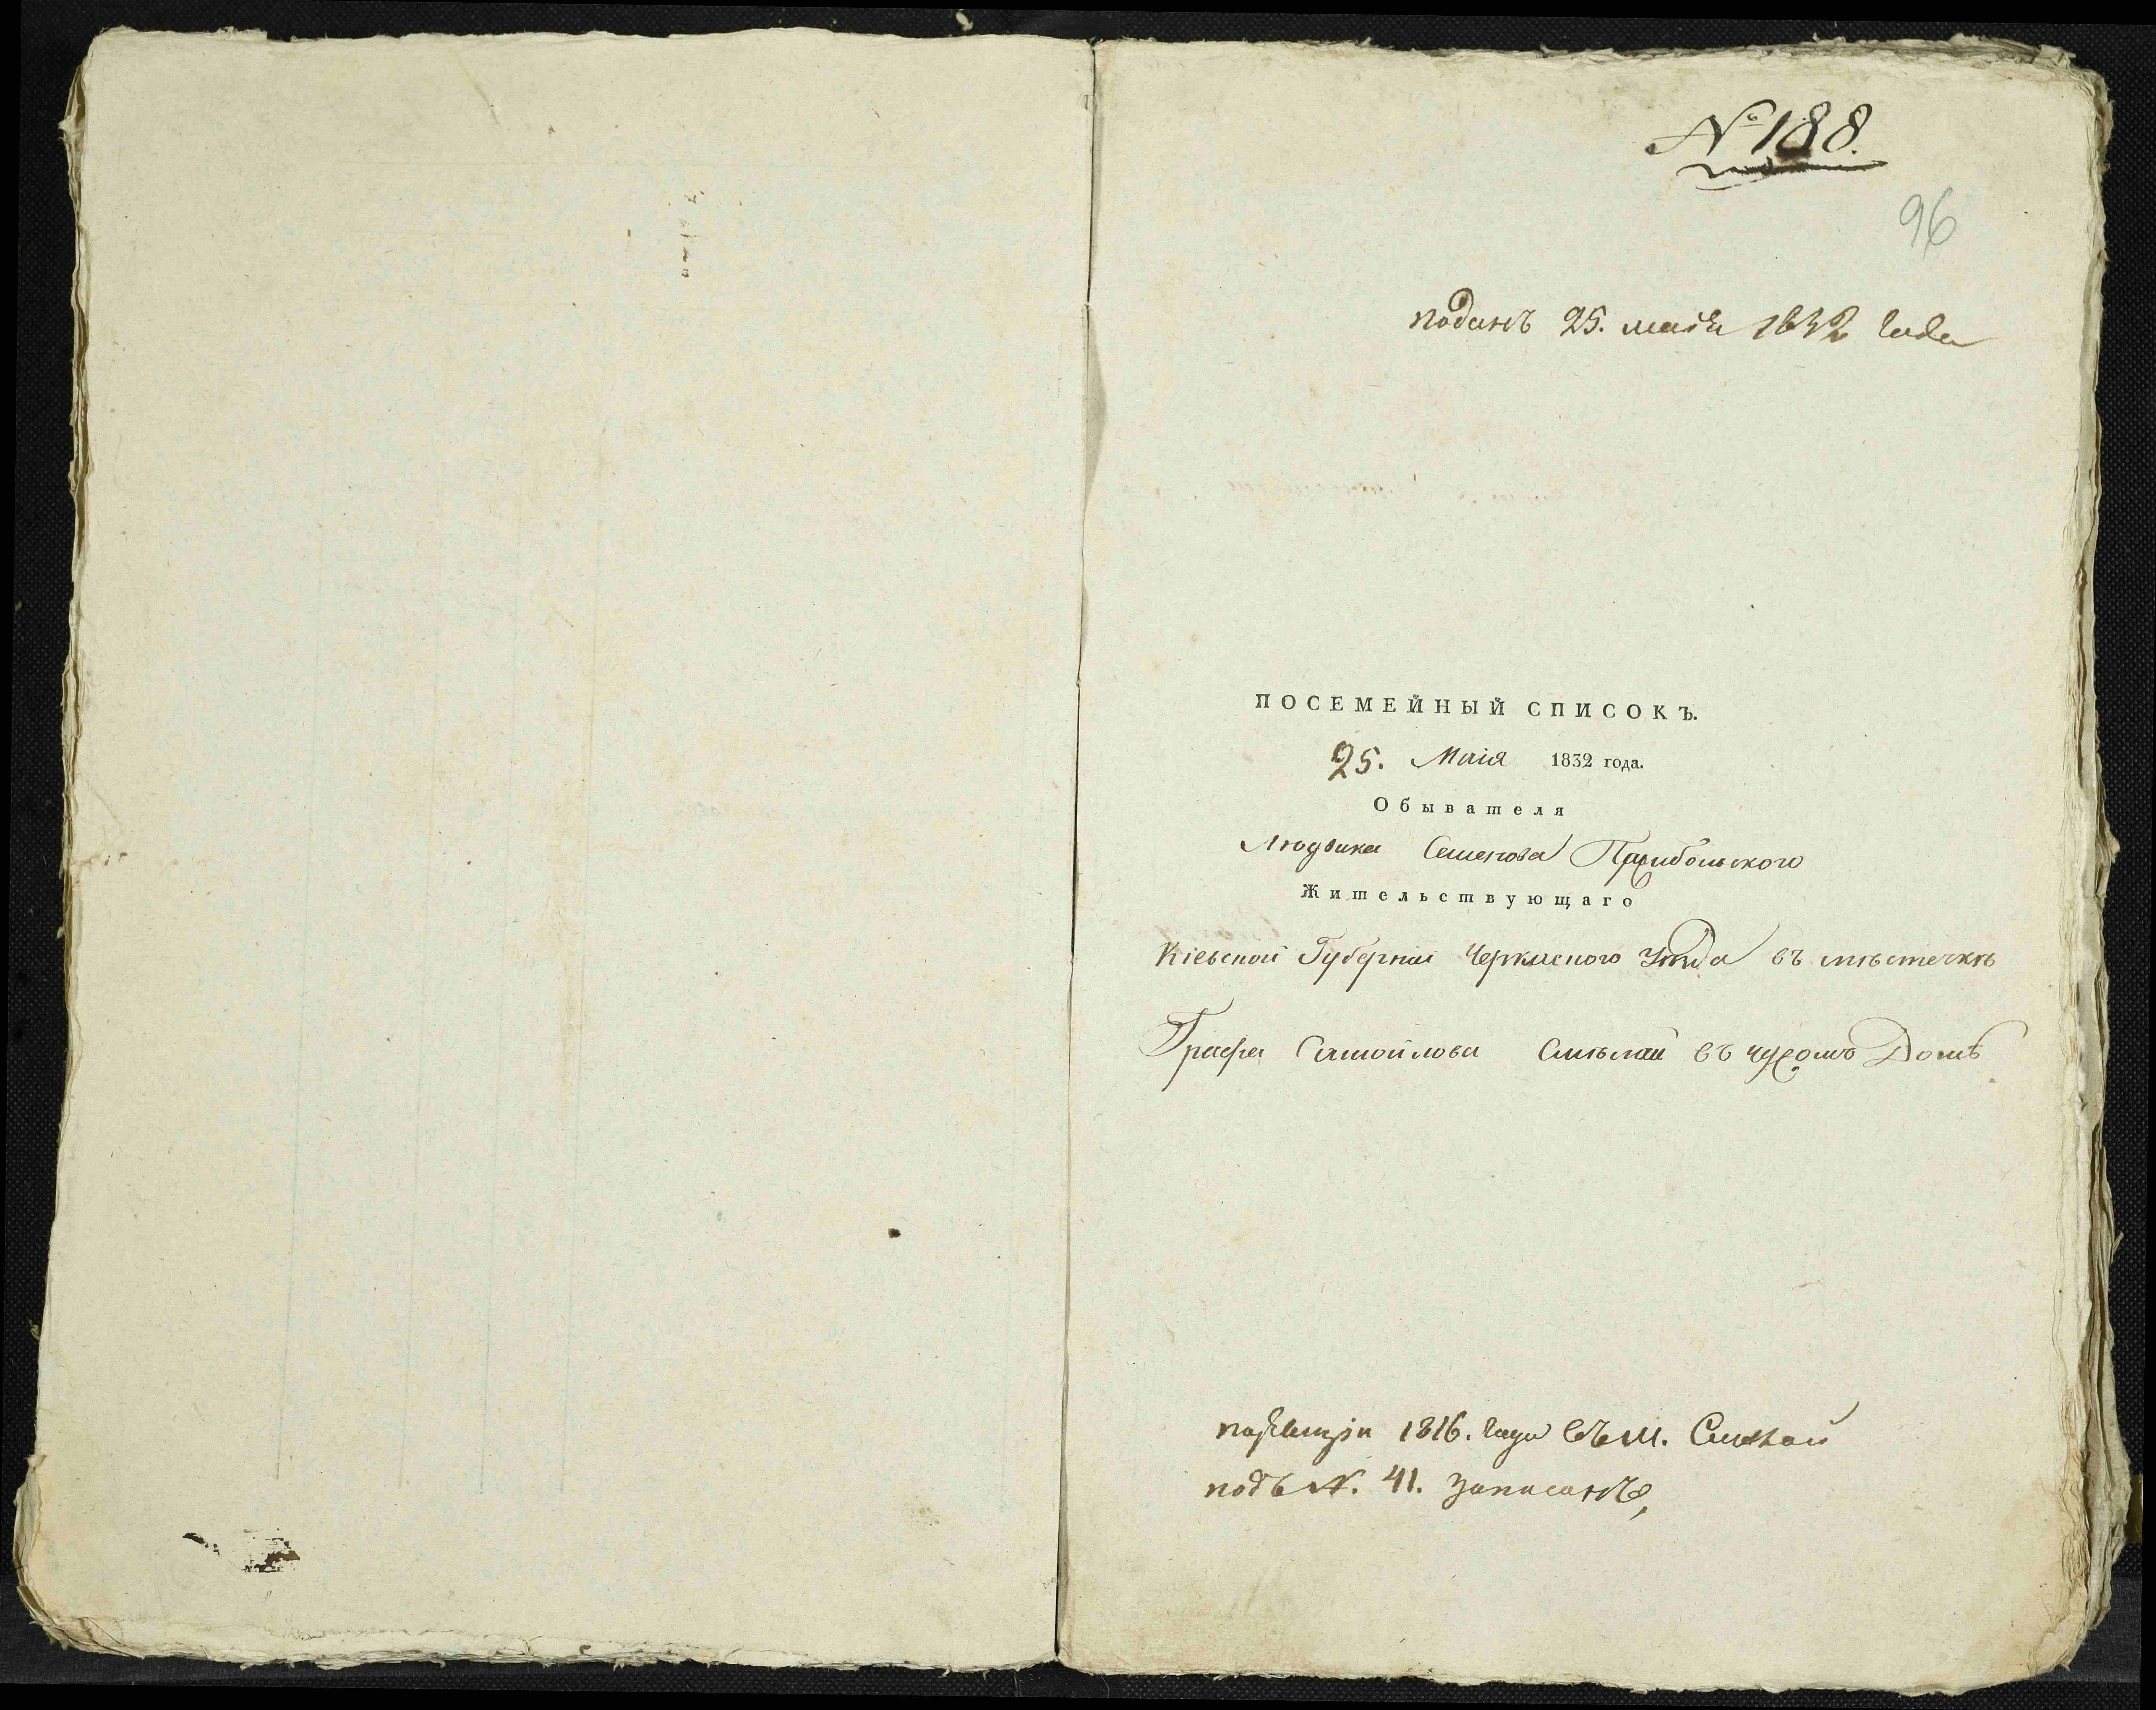 № 188.
96
поданъ 25. маія 1832 года
ПОСЕМЕЙНЫЙ СПИСОКЪ.
25. Маія 1832 года.
Обывателя
Людвика Семенова
Жительствующаго
Кіевской Губерніи Черкаского Уѣзда въ мѣстечкѣ
Графа Самойлова Смѣлой въ чужомъ Домѣ
по ревизіи 1816. года въ м. Смѣлой
подъ N. 41. записанъ,